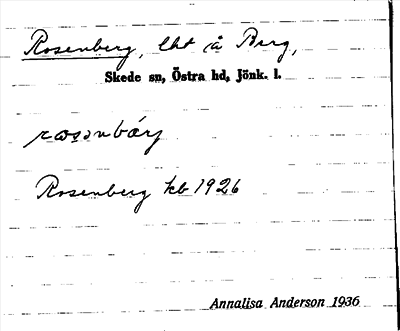 Rosenberg, lht å Berg,
Skede sn, Östra hd, Jönk. l.
rosənbárj
Rosenberg kb 1926
Annalisa Anderson 1936